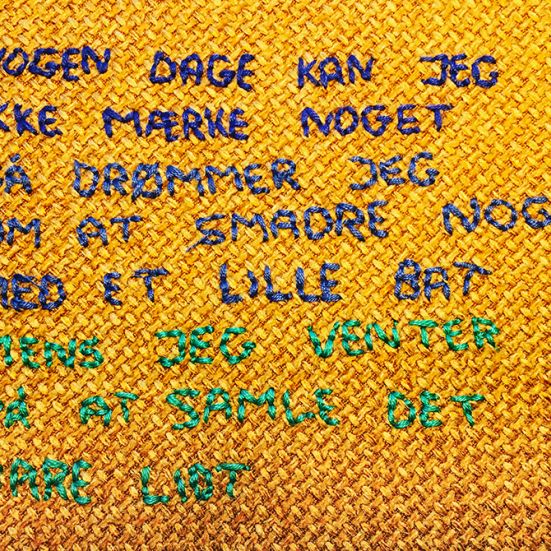 NOGEN DAGE KAN JEG
KKE MÆRKE NOGET
Å DRØMMER JEG
OM AT SMADRE NOG
MED ET LILLE BAT
MENS JEG VENTER
Å AT SAMLE DET
ARE